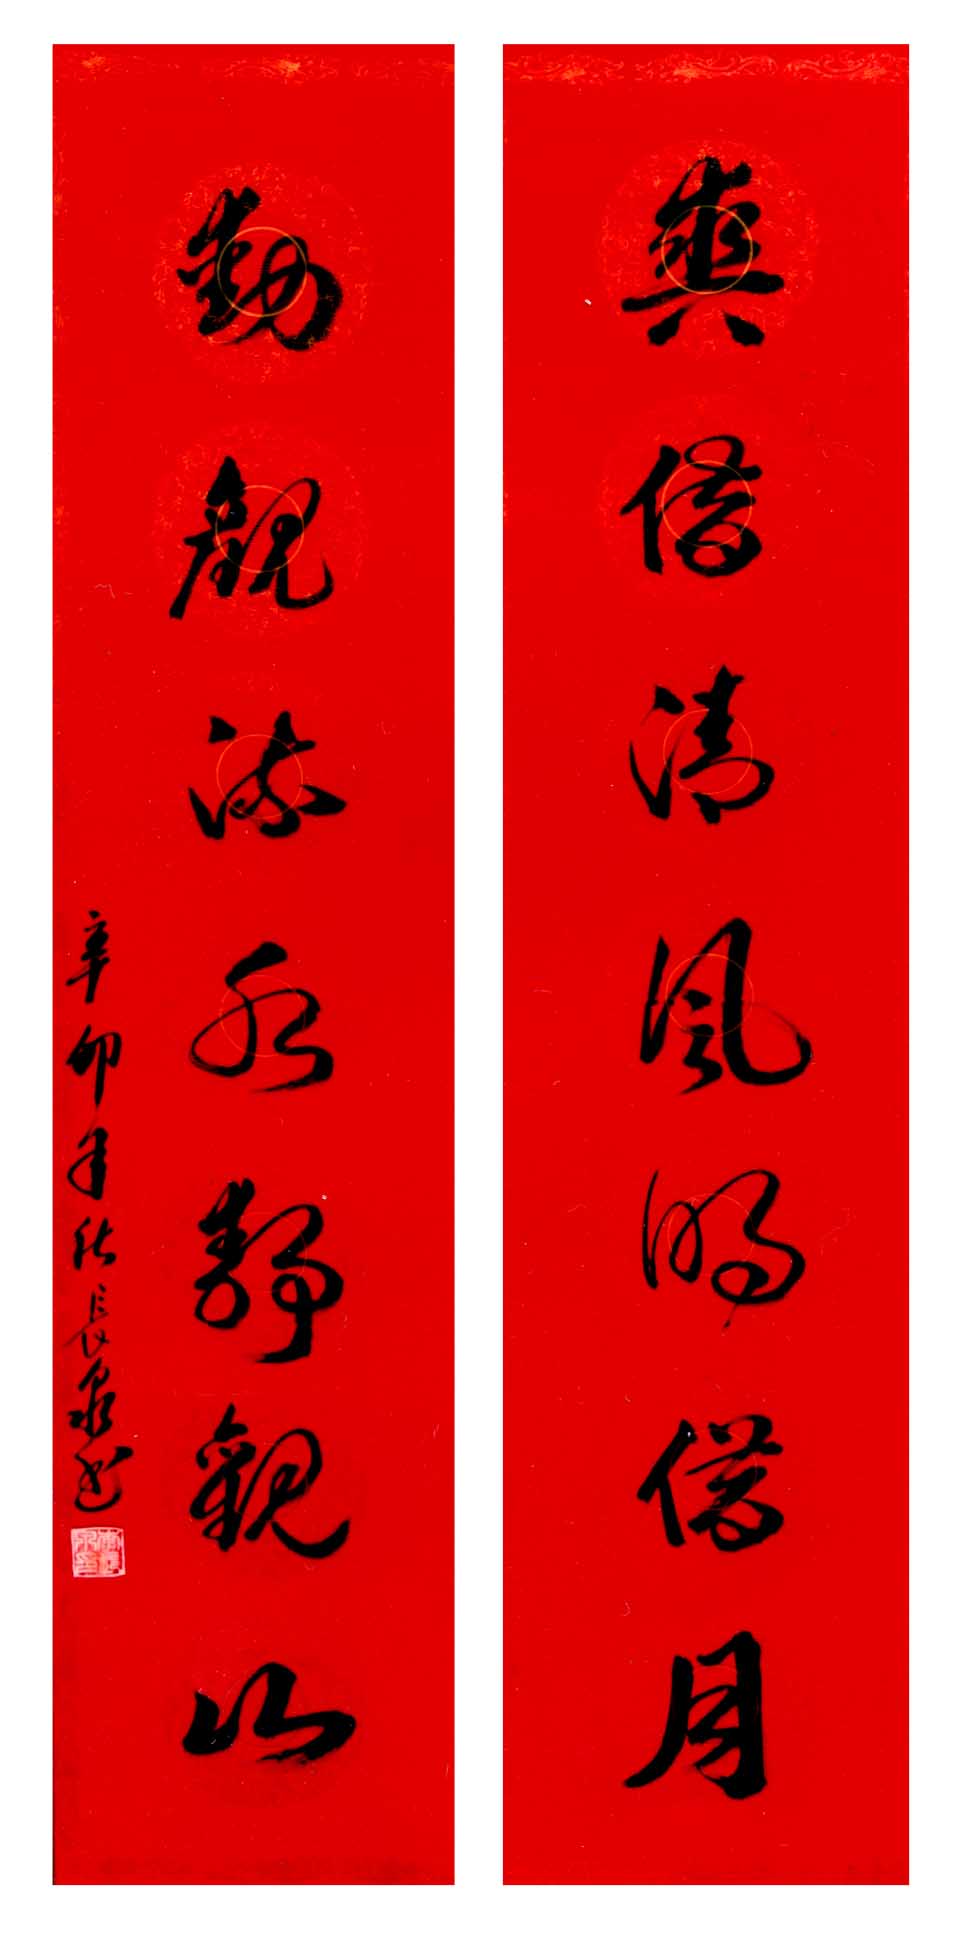 爽借清風明借月
動觀流水靜觀山
辛卯年秋長泉書